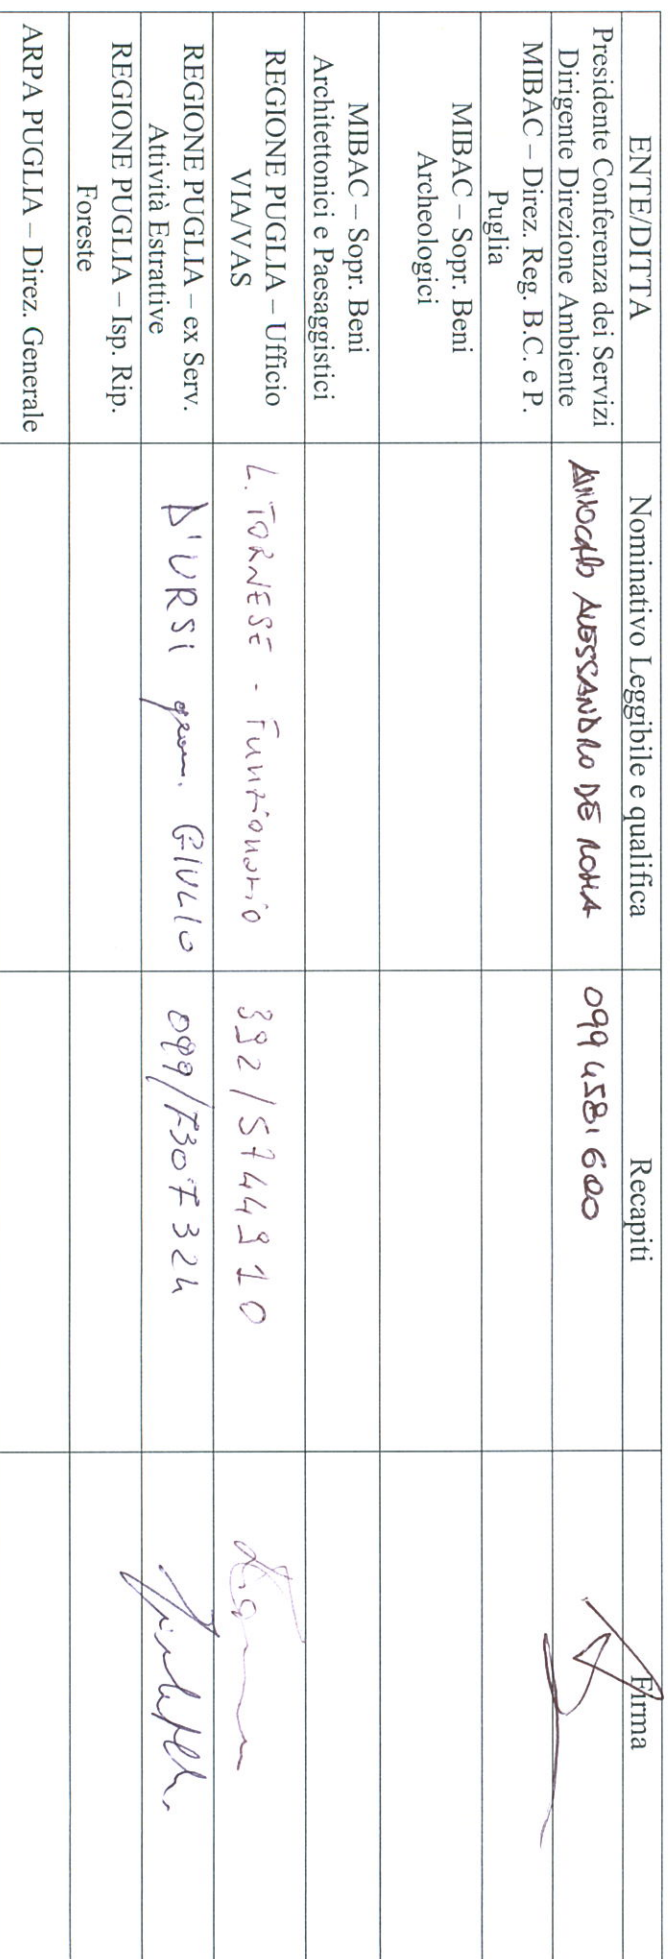 ENTE/DITTA Nominativo Leggibile e qualifica Recapiti Firma
Presidente Conferenza dei Servizi
Dirigente Direzione Ambiente
AVVOCATO ALESSANDRO DE ROMA 099 4581600
MIBAC – Direz. Reg. B.C. e P.
Puglia
MIBAC – Sopr. Beni
Archeologici
MIBAC – Sopr. Beni
Architettonici e Paesaggistici
REGIONE PUGLIA – Ufficio
VIA/VAS
L. TORNESE - Funzionario 392/5744910
REGIONE PUGLIA – ex Serv.
Attività Estrattive
D'URSI geom. GIULIO 099/7307324
REGIONE PUGLIA – Isp. Rip.
Foreste
ARPA PUGLIA – Direz. Generale